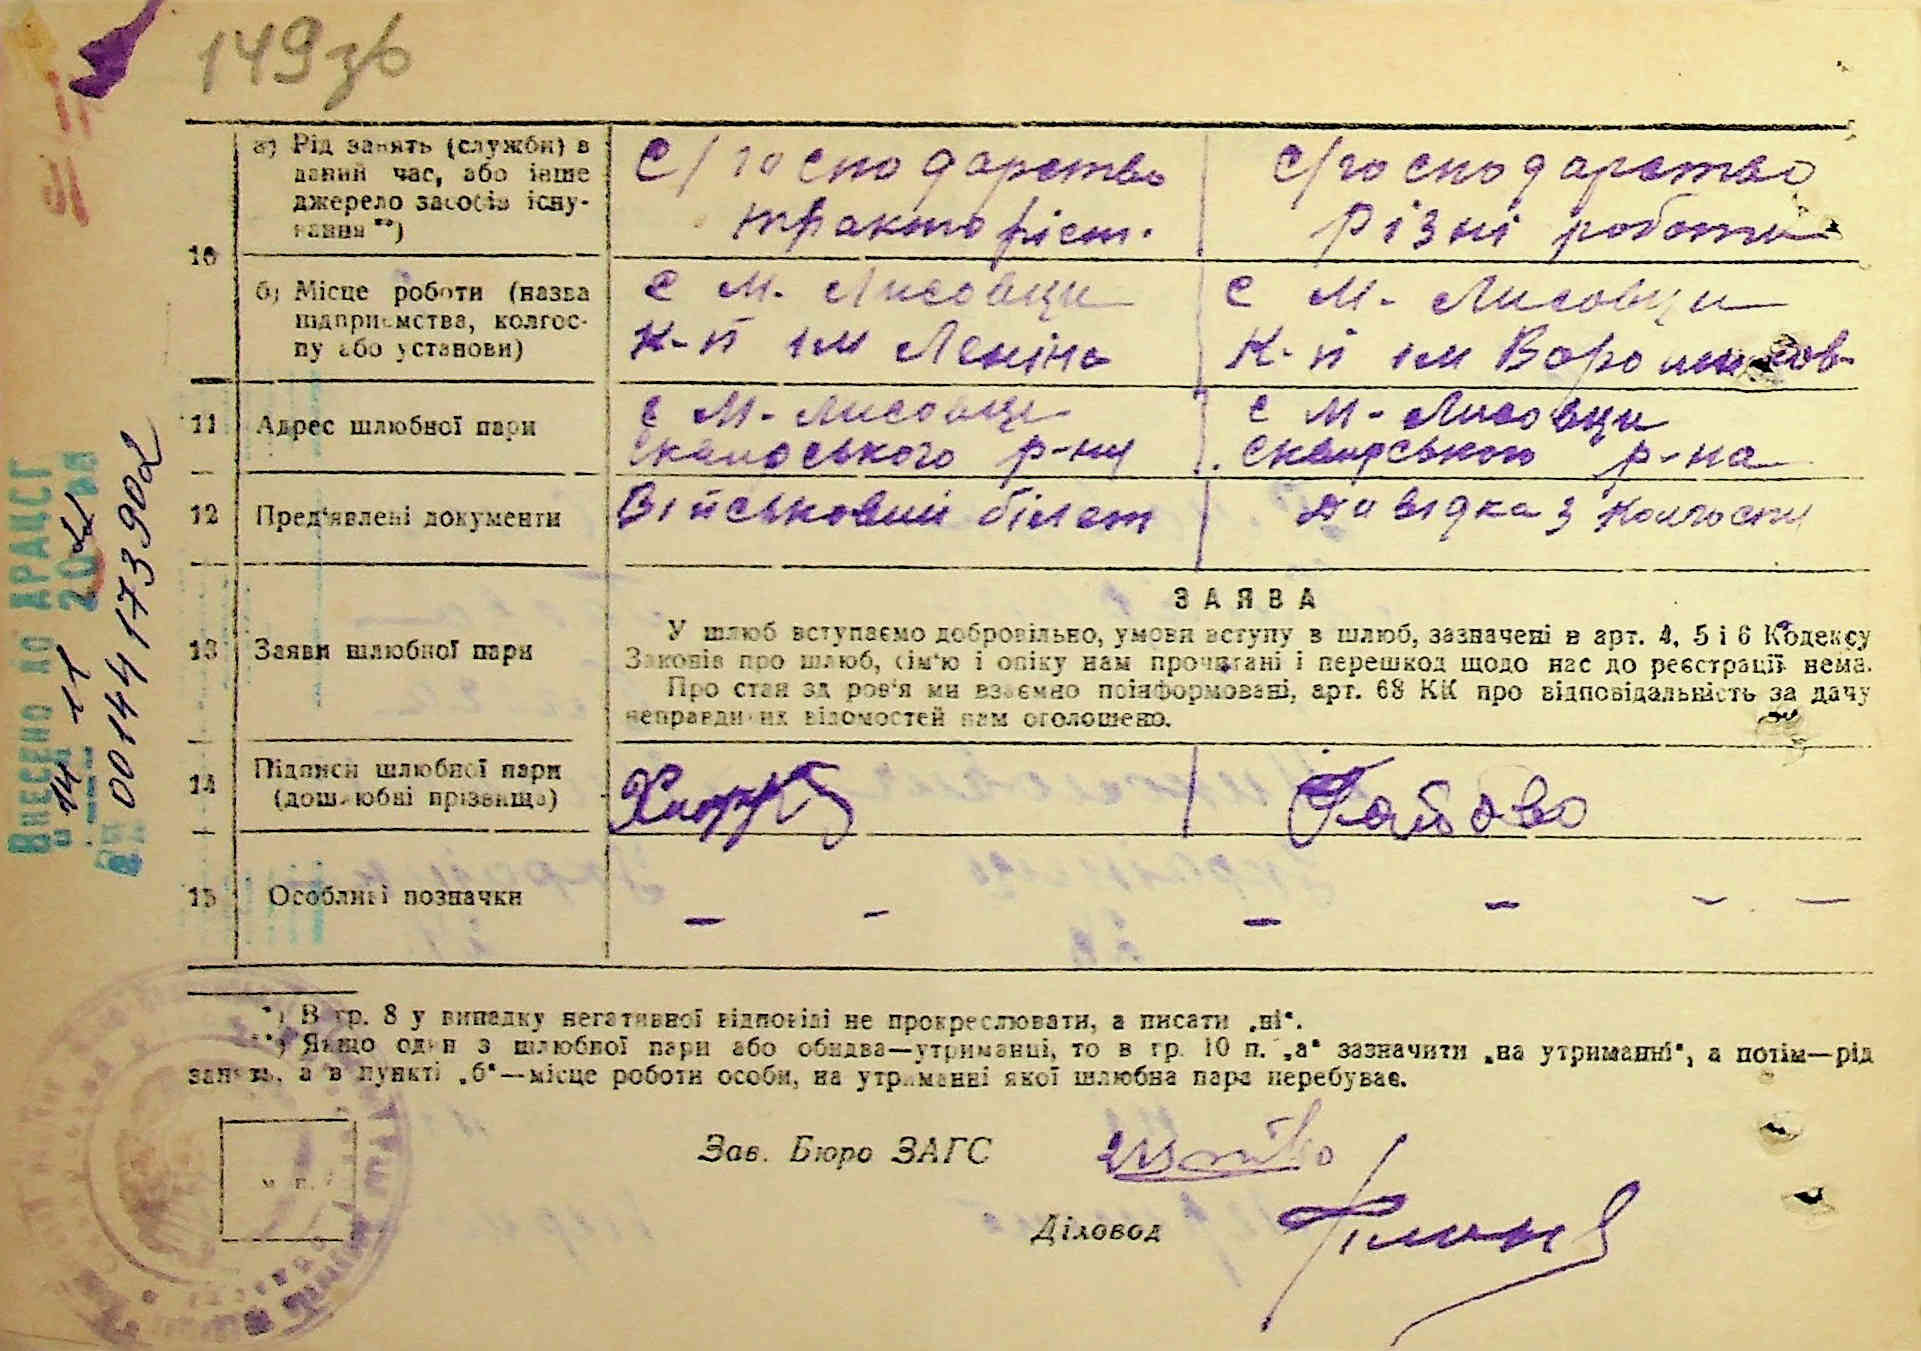 149зв
10
а) Рід занять (служби) в даний час, або інше джерело засобів існування **)
С/господарство
тракторіст.
с/господарство
Різні роботи
б) Місце роботи (назва підприємства, колгоспу або установи)
с М. Лисовци
к-п ім Леніна
с М. Лисовци
к-п ім
11
Адрес шлюбної пари
с М-Лисовци
р-ну
с М-Лисовци
р-на
12
Пред'явлені документи
Військовий білет
Довідка з колгоспу
13
Заяви шлюбної пари
ЗАЯВА
У шлюб вступаємо добровільно, умови вступу в шлюб, зазначені в арт. 4, 5 і 6 Кодексу
Законів про шлюб, сім'ю і опіку нам прочитані і перешкод щодо нас до реєстрації нема.
Про стан здоров'я ми взаємно поінформовані, арт. 68 КК про відповідальність за дачу
неправдивих відомостей нам оголошено.
14
Підписи шлюбної пари
(дошлюбні прізвища)
15
Особливі позначки
– – – – – –
*) В гр. 8 у випадку негативної відповіді не прокреслювати, а писати „ні“.
**) Якщо один з шлюбної пари або обидва—утриманці, то в гр. 10 п. „а“ зазначити „на утриманні“, а потім—рід
занять, а в пункті „б“—місце роботи особи, на утриманні якої шлюбна пара перебуває.
м. п.
Зав. Бюро ЗАГС
Діловод
Внесено до ДРАЦСГ
14 11 2022
00144173902